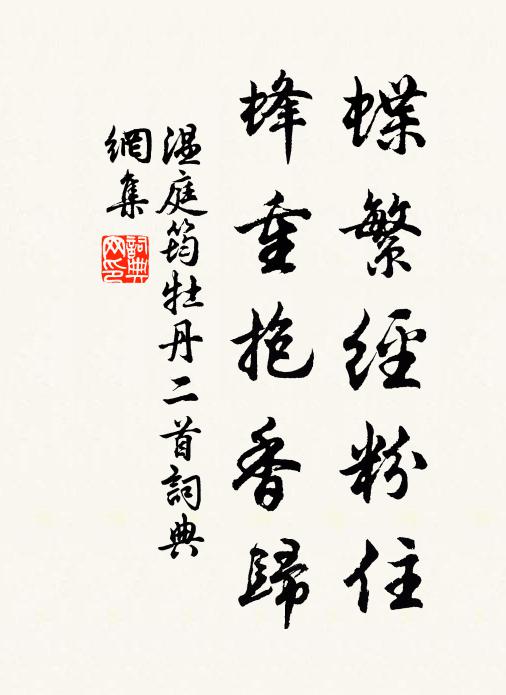 蝶繁經粉住
蜂重抱香歸
温庭筠牡丹二首詞典
網集
詞典
网印